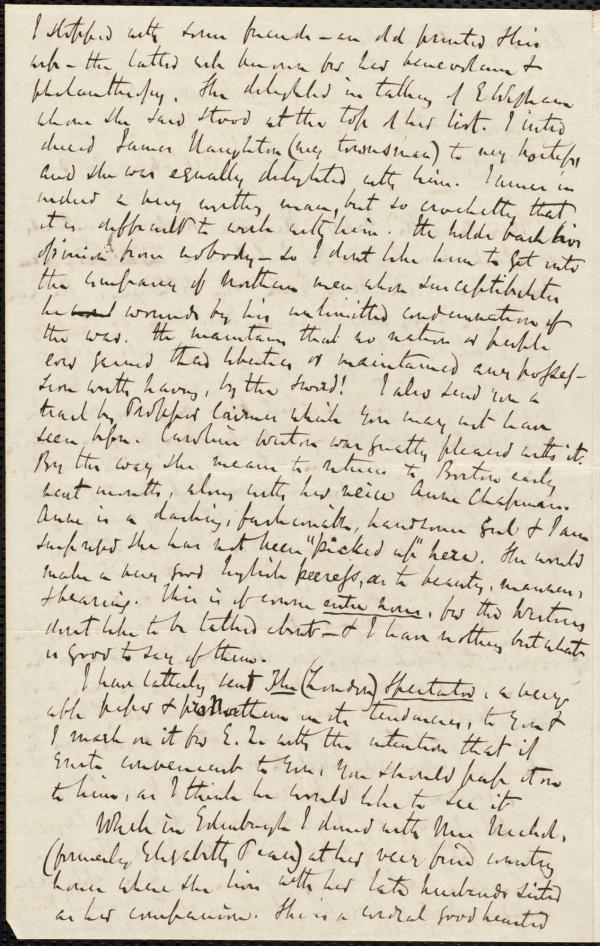 I stopped with some friends - an old printer & his
wife - the latter well known for her benevolence &
philanthropy. She delighted in talking of E. Wigham
whom she said stood at the top of her list. I intro
duced James Haughton (my townsman) to my hostess
and she was equally delighted with him. James is
indeed a very worthy man, but so crochetty that
it is difficult to work with him. He holds back his
opinion from nobody - so I dont like him to get into
the company of Northern men whose susceptibilities
he wounds by his unlimitted condemnation of
the war. He maintains that no nation or people
ever gained their liberties or maintained any posses-
sion worth having, by the sword! I also send you a
tract by Professor Cairnes which you may not have
seen before. Caroline Weston was greatly pleased with it.
By the way she means to return to Boston early
next month, along with her neice Anne Chapman.
Anne is a dashing, fashionable, handsome girl & I am
surprised she has not been "picked up" here. She would
make a very good English peeress, as to beauty, manners,
& bearing. This is of course entre nous, for the Westons
dont like to be talked about - & I have nothing but what
is good to say of them.
I have latterly sent The (London) Spectator, a very
able paper & pro Northern in its tendencies, to you &
I mark on it for E. Q. with the intention that if
quite convenient to you, you should pass it on
to him, as I think he would like to see it
While in Edinburgh I dined with Mrs Nichol,
(formerly Elizabeth Pease) at her very fine country
house where she lives with her late husbands sister
as her companion. She is a cordial good hearted